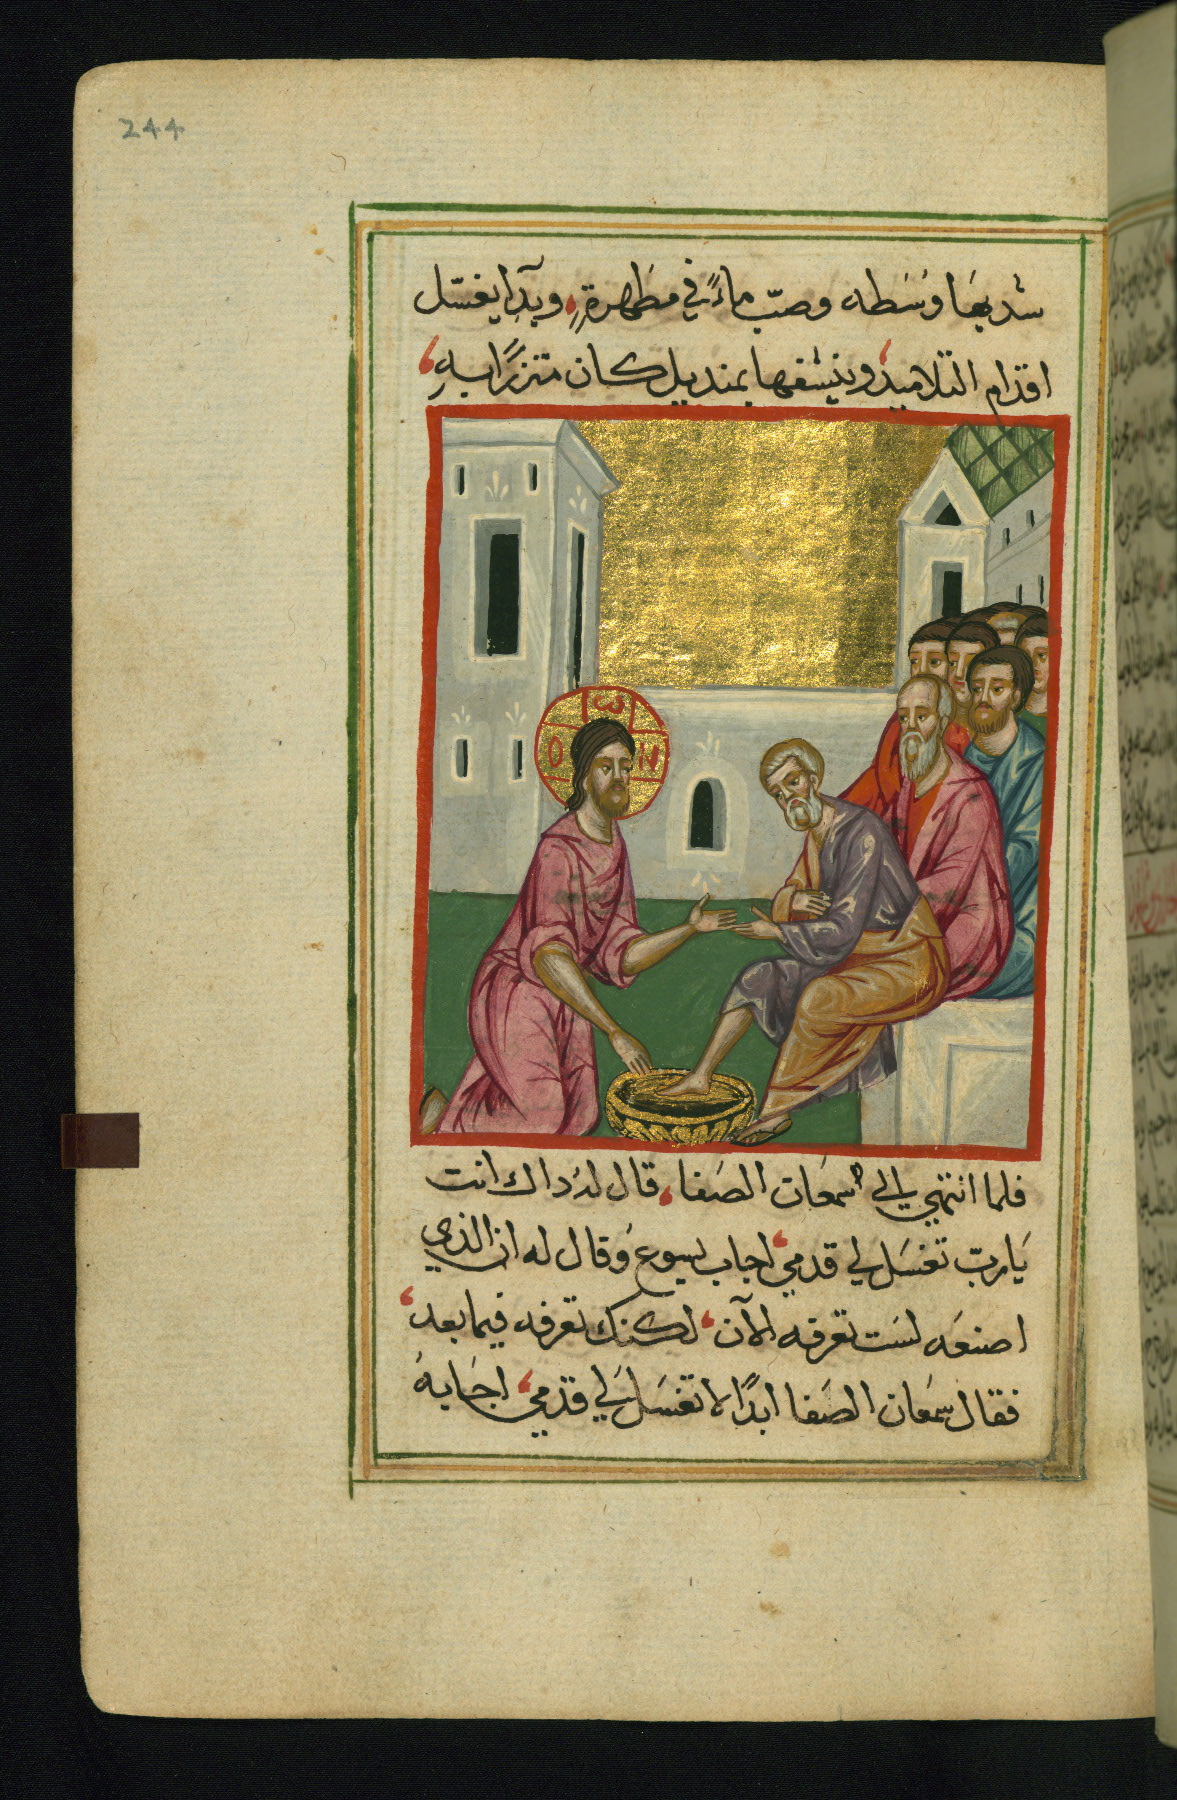 244
شد بها وَسَطه وصبّ ماءً في مطَهرةٍ، وبدَا يغسّل
اقدام التلاميذ، وينشفها بمنديل كان متزرًا بهِ،
Ο Ω Ν
فلما انتهي الي سمعَان الصَفا، قال له ذاك انت
يَا ربّ تغسَل لي قدمي، اجاب يسوع وَقال له ان الذي
اصنعَه لسَت تعرفه الآن، لكنك تعرفه فيما بعد،
فقال سمعَان الصَفا ابدًا لا تغسَل لي قدمي، اجَابهُ